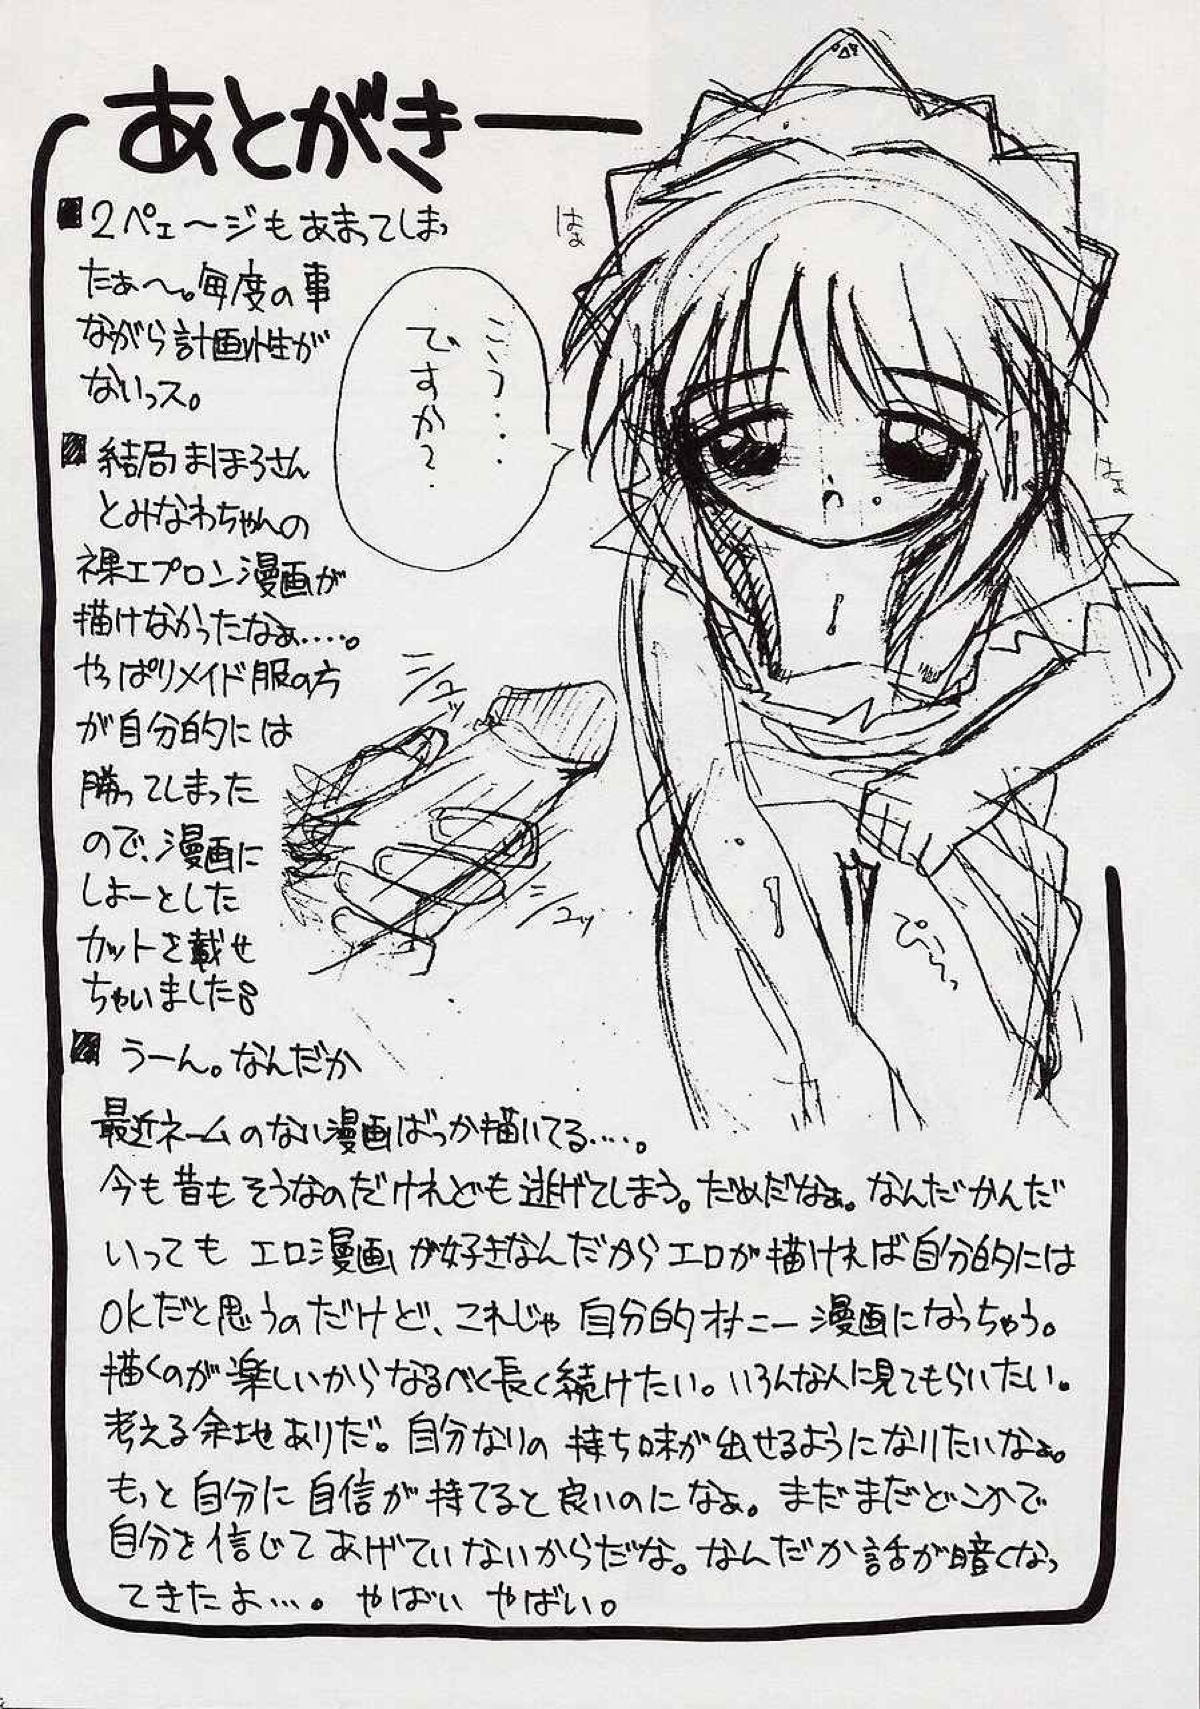 あとがき
■2ペェ～ジもあまってしまっ
たぁ～。毎度の事
ながら計画性が
ないっス。
■結局まほろさん
とみなわちゃんの
裸エプロン漫画が
描けなかったなぁ……。
やっぱりメイド服の方
が自分的には
勝ってしまった
ので、漫画に
しよーとした
カットを載せ
ちゃいました。
■うーん。なんだか
最近ネームのない漫画ばっか描いてる……。
今も昔もそうなのだけれども逃げてしまう。だめだなぁ。なんだかんだ
いっても エロ漫画が好きなんだからエロが描ければ自分的には
OKだと思うのだけど、これじゃ自分的オナニー漫画になっちゃう。
描くのが楽しいからなるべく長く続けたい。いろんな人に見てもらいたい。
考える余地ありだ。自分なりの持ち味が出せるようになりたいなぁ。
もっと自分に自信が持てると良いのになぁ。まだまだどこかで
自分を信じてあげていないからだな。なんだか話が暗くなっ
てきたよ…。やばい やばい。
はぁ
こう・・・
ですか？
はぁ
シュッ
シュッ